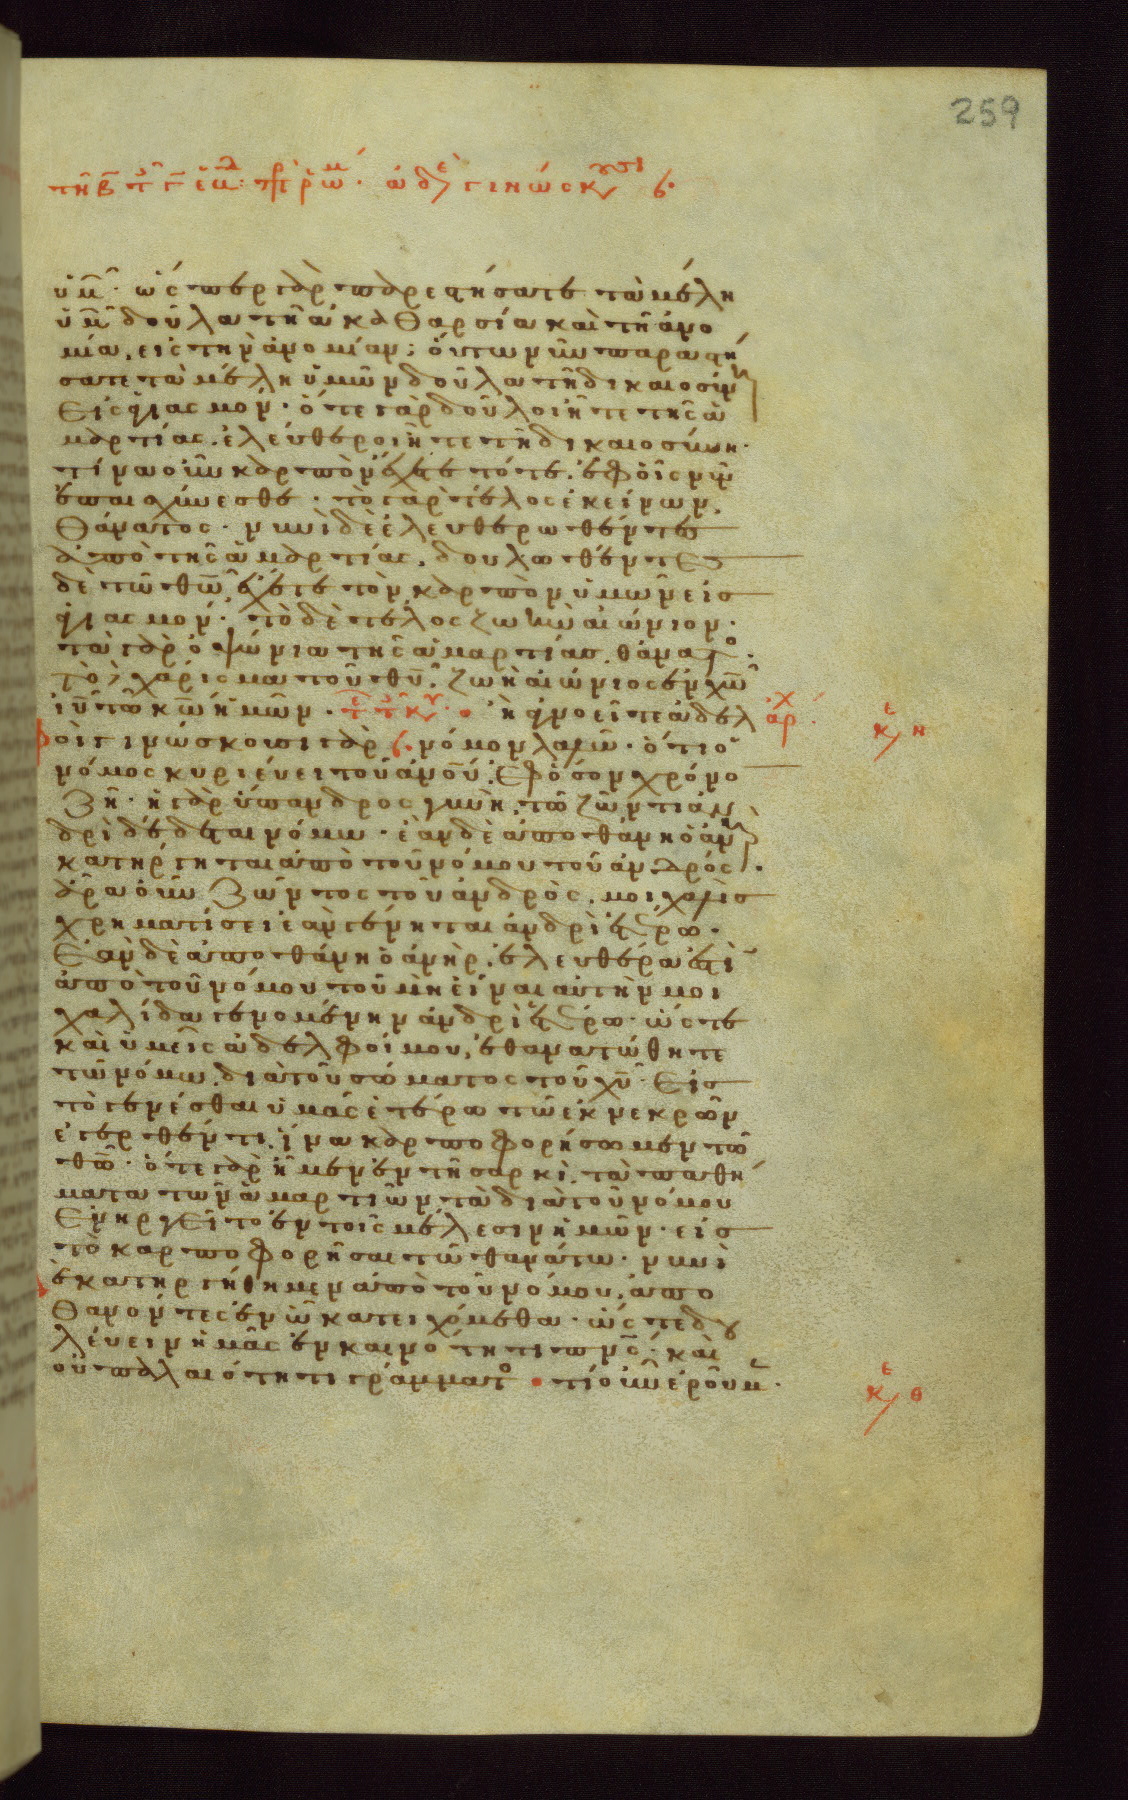 259
τῆ β τ γ ἑβδ πρ ῥωμ. ἀδε γινώσκουσι
ὑμῶν. ὥσπερ γὰρ παρεστήσατε τὰ μέλη
ὑμῶν δοῦλα τῆ ἀκαθαρσία καὶ τῆ ἀνο
μία, εἰς τὴν ἀνομίαν; οὕτω νῦν παραστή
σατε τὰ μέλη ὑμῶν δοῦλα τῆ δικαιοσύνη
εἰς ἁγιασμόν. ὅτε γὰρ δοῦλοι ἦτε τῆς ἁ
μαρτίας, ἐλεύθεροι ἦτε τῆ δικαιοσύνη.
τίνα οὖν καρπὸν εἴχετε τότε, ἐφ οἷς νῦν
ἐπαισχύνεσθε. τὸ γὰρ τέλος ἐκείνων,
θάνατος. νυνὶ δὲ ἐλευθερωθέντες
ἀπὸ τῆς ἁμαρτίας, δουλωθέντες
δὲ τῶ θῶ, ἔχετε τὸν καρπὸν ὑμῶν εἰς
ἁγιασμόν. τὸ δὲ τέλος ζωὴν αἰώνιον.
τὰ γὰρ ὀψώνια τῆς ἁμαρτίας, θάνατο.
τὸ δὲ χάρισμα τοῦ θυ, ζωὴ αἰώνιος ἐν χῶ
ιυ τῶ κω ἡμῶν. ἢ ἀγνοεῖτε ἀδελ
φοὶ γινώσκουσι γὰρ νόμον λαλῶ. ὅτι ὁ
νόμος κυριεύει τοῦ ἀνου, ἐφ ὅσον χρόνο
ζῆ. ἡ γὰρ ὕπανδρος γυνὴ, τῶ ζῶντι ἀν
δρὶ δέδεται νόμω. ἐὰν δὲ ἀποθάνη ὁ ἀνὴρ
κατήργηται ἀπὸ τοῦ νόμου τοῦ ἀνδρός.
ἄρα οὖν ζῶντος τοῦ ἀνδρὸς, μοιχαλὶς
χρηματίσει ἐὰν γένηται ἀνδρὶ ἑτέρω.
ἐὰν δὲ ἀποθάνη ὁ ἀνὴρ, ἐλευθέρα ἐστὶ
ἀπὸ τοῦ νόμου τοῦ μὴ εἶναι αὐτὴν μοι
χαλίδα γενομένην ἀνδρὶ ἑτέρω. ὥστε
καὶ ὑμεῖς ἀδελφοί μου, ἐθανατώθητε
τῶ νόμω, διὰ τοῦ σώματος τοῦ χυ. εἰς
τὸ γενέσθαι ὑμᾶς ἑτέρω τῶ ἐκ νεκρῶν
ἐγερθέντι, ἵνα καρποφορήσωμεν τῶ
θῶ. ὅτε γὰρ ἦμεν ἐν τῆ σαρκὶ, τὰ παθή
ματα τῶν ἁμαρτιῶν τὰ διὰ τοῦ νόμου
ἐνηργεῖτο ἐν τοῖς μέλεσιν ἡμῶν. εἰς
τὸ καρποφορῆσαι τῶ θανάτω. νυνὶ
δὲ κατηργήθημεν ἀπὸ τοῦ νόμου, ἀπο
θανόντες ἐν ὧ κατειχόμεθα. ὥστε δου
λεύειν ἡμᾶς ἐν καινότητι πνς, καὶ
οὐ παλαιότητι γράμματο. τί οὖν ἐροῦμ.
ἀρχ
κε η
κε θ